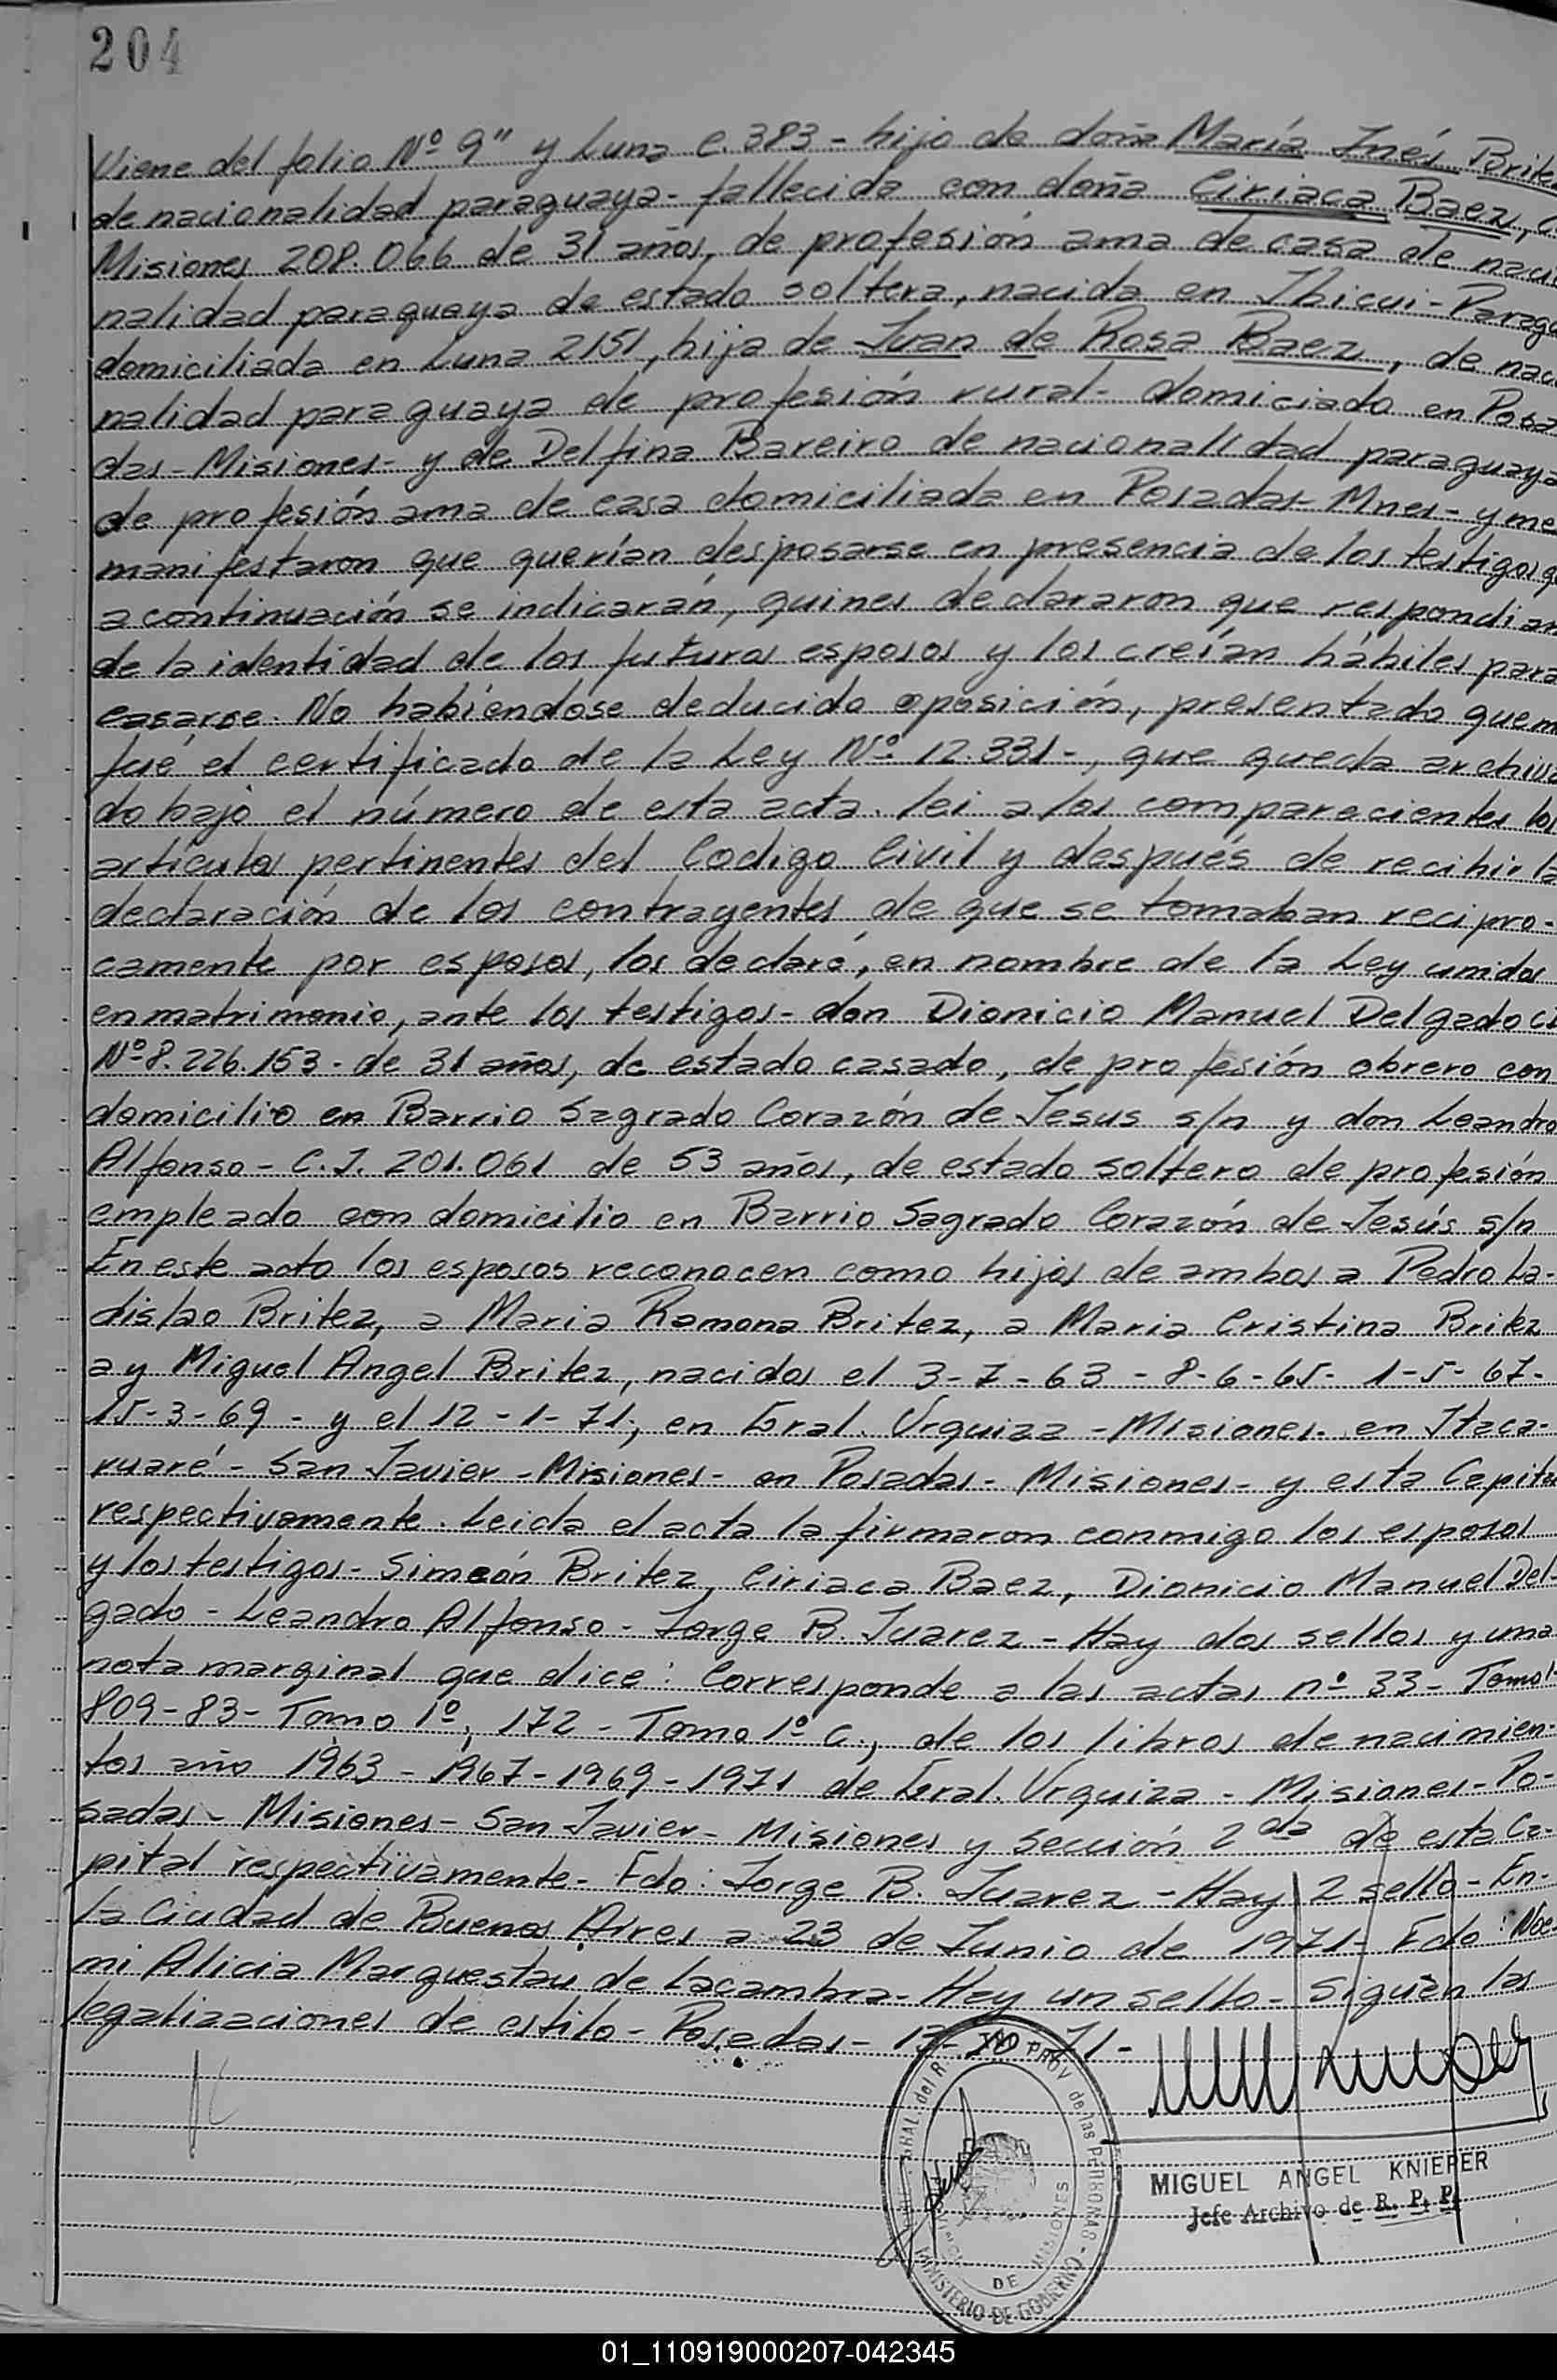 204
Viene del folio Nº 9" y Luna e. 383 - hijo de doña María Inés Brite
de nacionalidad paraguaya - fallecida con doña Ciriaca Baez, C.
Misiones 208.066 de 31 años, de profesión ama de casa de nacio
nalidad paraguaya de estado soltera, nacida en Ibicui - Paragu
domiciliada en Luna 2151, hija de Juan de Rosa Baez, de naci
nalidad paraguaya de profesión rural - domiciado en Posa
das - Misiones - y de Delfina Bareiro de nacionalidad paraguaya
de profesión ama de casa domiciliada en Posadas - Mnes - y me
manifestaron que querían desposarse en presencia de los testigos q
a continuación se indicarán, quines declararon que respondian
de la identidad de los futuros esposos y los creían hábiles para
casarse. No habiéndose deducido oposición, presentado que m
fué el certificado de la Ley Nº 12.331 -, que queda archiva
do bajo el número de esta acta. lei a los comparecientes los
artículos pertinentes del Codigo Civil y después de recibir la
declaración de los contrayentes de que se tomaban recipro-
camente por esposos, los declaré, en nombre de la Ley unidos
en matrimonio, ante los testigos - don Dionicio Manuel Delgado CI
Nº 8.226.153 - de 31 años, de estado casado, de profesión obrero con
domicilio en Barrio Sagrado Corazón de Jesus s/n y don Leandro
Alfonso - C.I. 201.061 de 53 años, de estado soltero de profesión
empleado con domicilio en Barrio Sagrado Corazón de Jesús s/n
En este acto los esposos reconocen como hijos de ambos a Pedro La-
dislao Britez, a Maria Ramona Britez, a Maria Cristina Britez
a y Miguel Angel Britez, nacidos el 3-7-63 - 8-6-65 - 1-5-67-
15-3-69 - y el 12-1-71, en Gral. Urquiza - Misiones - en Itaca-
ruaré - San Javier - Misiones - en Posadas - Misiones - y esta Capital
respectivamente. Leida el acta la firmaron conmigo los esposos
y los testigos - Simeón Britez, Ciriaca Baez, Dionicio Manuel Del-
gado - Leandro Alfonso - Jorge B. Juarez - Hay dos sellos y una
nota marginal que dice: Corresponde a las actas nº 33 - Tomo 1º
809 - 83 - Tomo 1º, 172 - Tomo 1º C., de los libros de nacimien-
tos año 1963 - 1967 - 1969 - 1971 de Gral. Urquiza - Misiones - Po-
sadas - Misiones - San Javier - Misiones y Sección 2da de esta Ca-
pital respectivamente - Fdo: Jorge B. Juarez - Hay 2 sello - En-
La Ciudad de Buenos Aires a 23 de Junio de 1971 - Fdo: Noe-
mi Alicia Marquestau de Lacambra - Hay un sello - siguen las
legalizaciones de estilo - Posadas - 13- -71 -
MIGUEL ANGEL KNIEPER
Jefe Archivo de R. P. P.
GRAL. del R PROV de las PERSONAS
MINISTERIO DE GOBIERNO
DE MISIONES
01_110919000207-042345